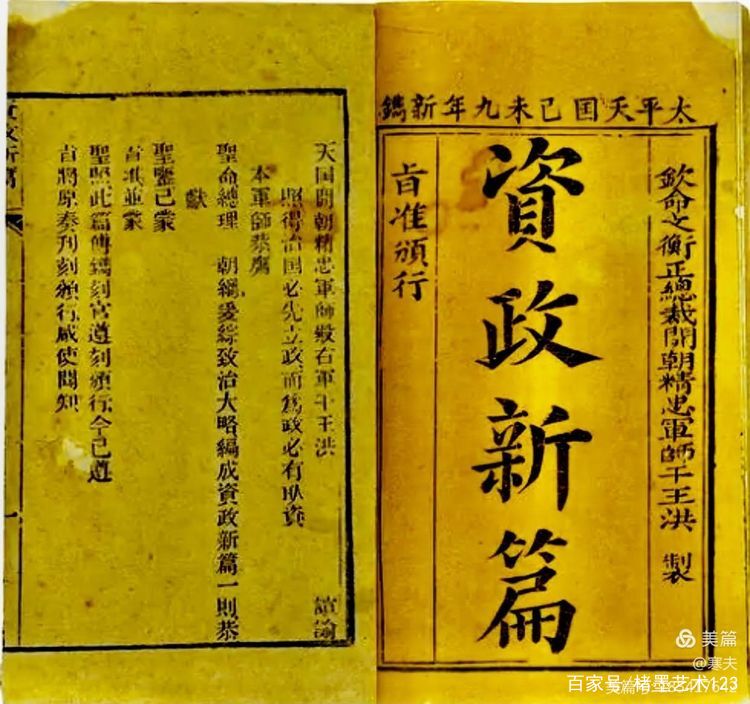 太平天囯己未九年新鐫
欽命文衡正總裁開朝精忠軍師干王洪 製
資政新篇
旨准頒行
天囯開朝精忠軍師殿右軍干王洪 諠諭
照得治囯必先立政而爲政必有取資
本軍師恭膺
聖命總理 朝綱爰綜致治大略編成資政新篇一則恭
獻
聖鑒已蒙
旨准並蒙
聖照此篇傳鐫刻官遵刻頒行今已遵
旨將原奏刊刻頒行咸使聞知
資政新篇
一
美篇
@寒夫
百家号/楮墨艺术123